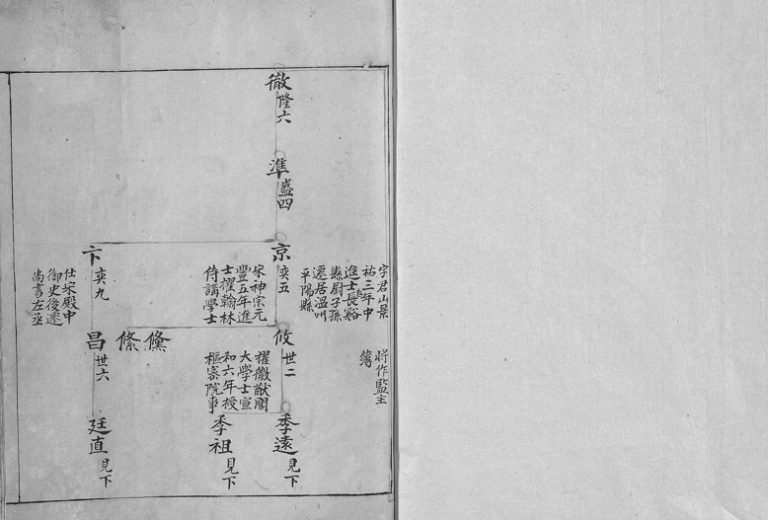 徹 隆六
準 盛四
京 奕五
卞 奕九
字君山景
祐三年中
進士長谿
縣尉子孫
遷居溫州
平陽縣
宋神宗元
豐五年進
士擢翰林
侍講學士
仕宋殿中
御史後遷
尚書左丞
將作監主
簿
攸 世二
擢徽猷閣
大學士宣
和六年授
樞密院事
儵
絛
昌 世六
季遠 見下
季祖 見下
廷直 見下